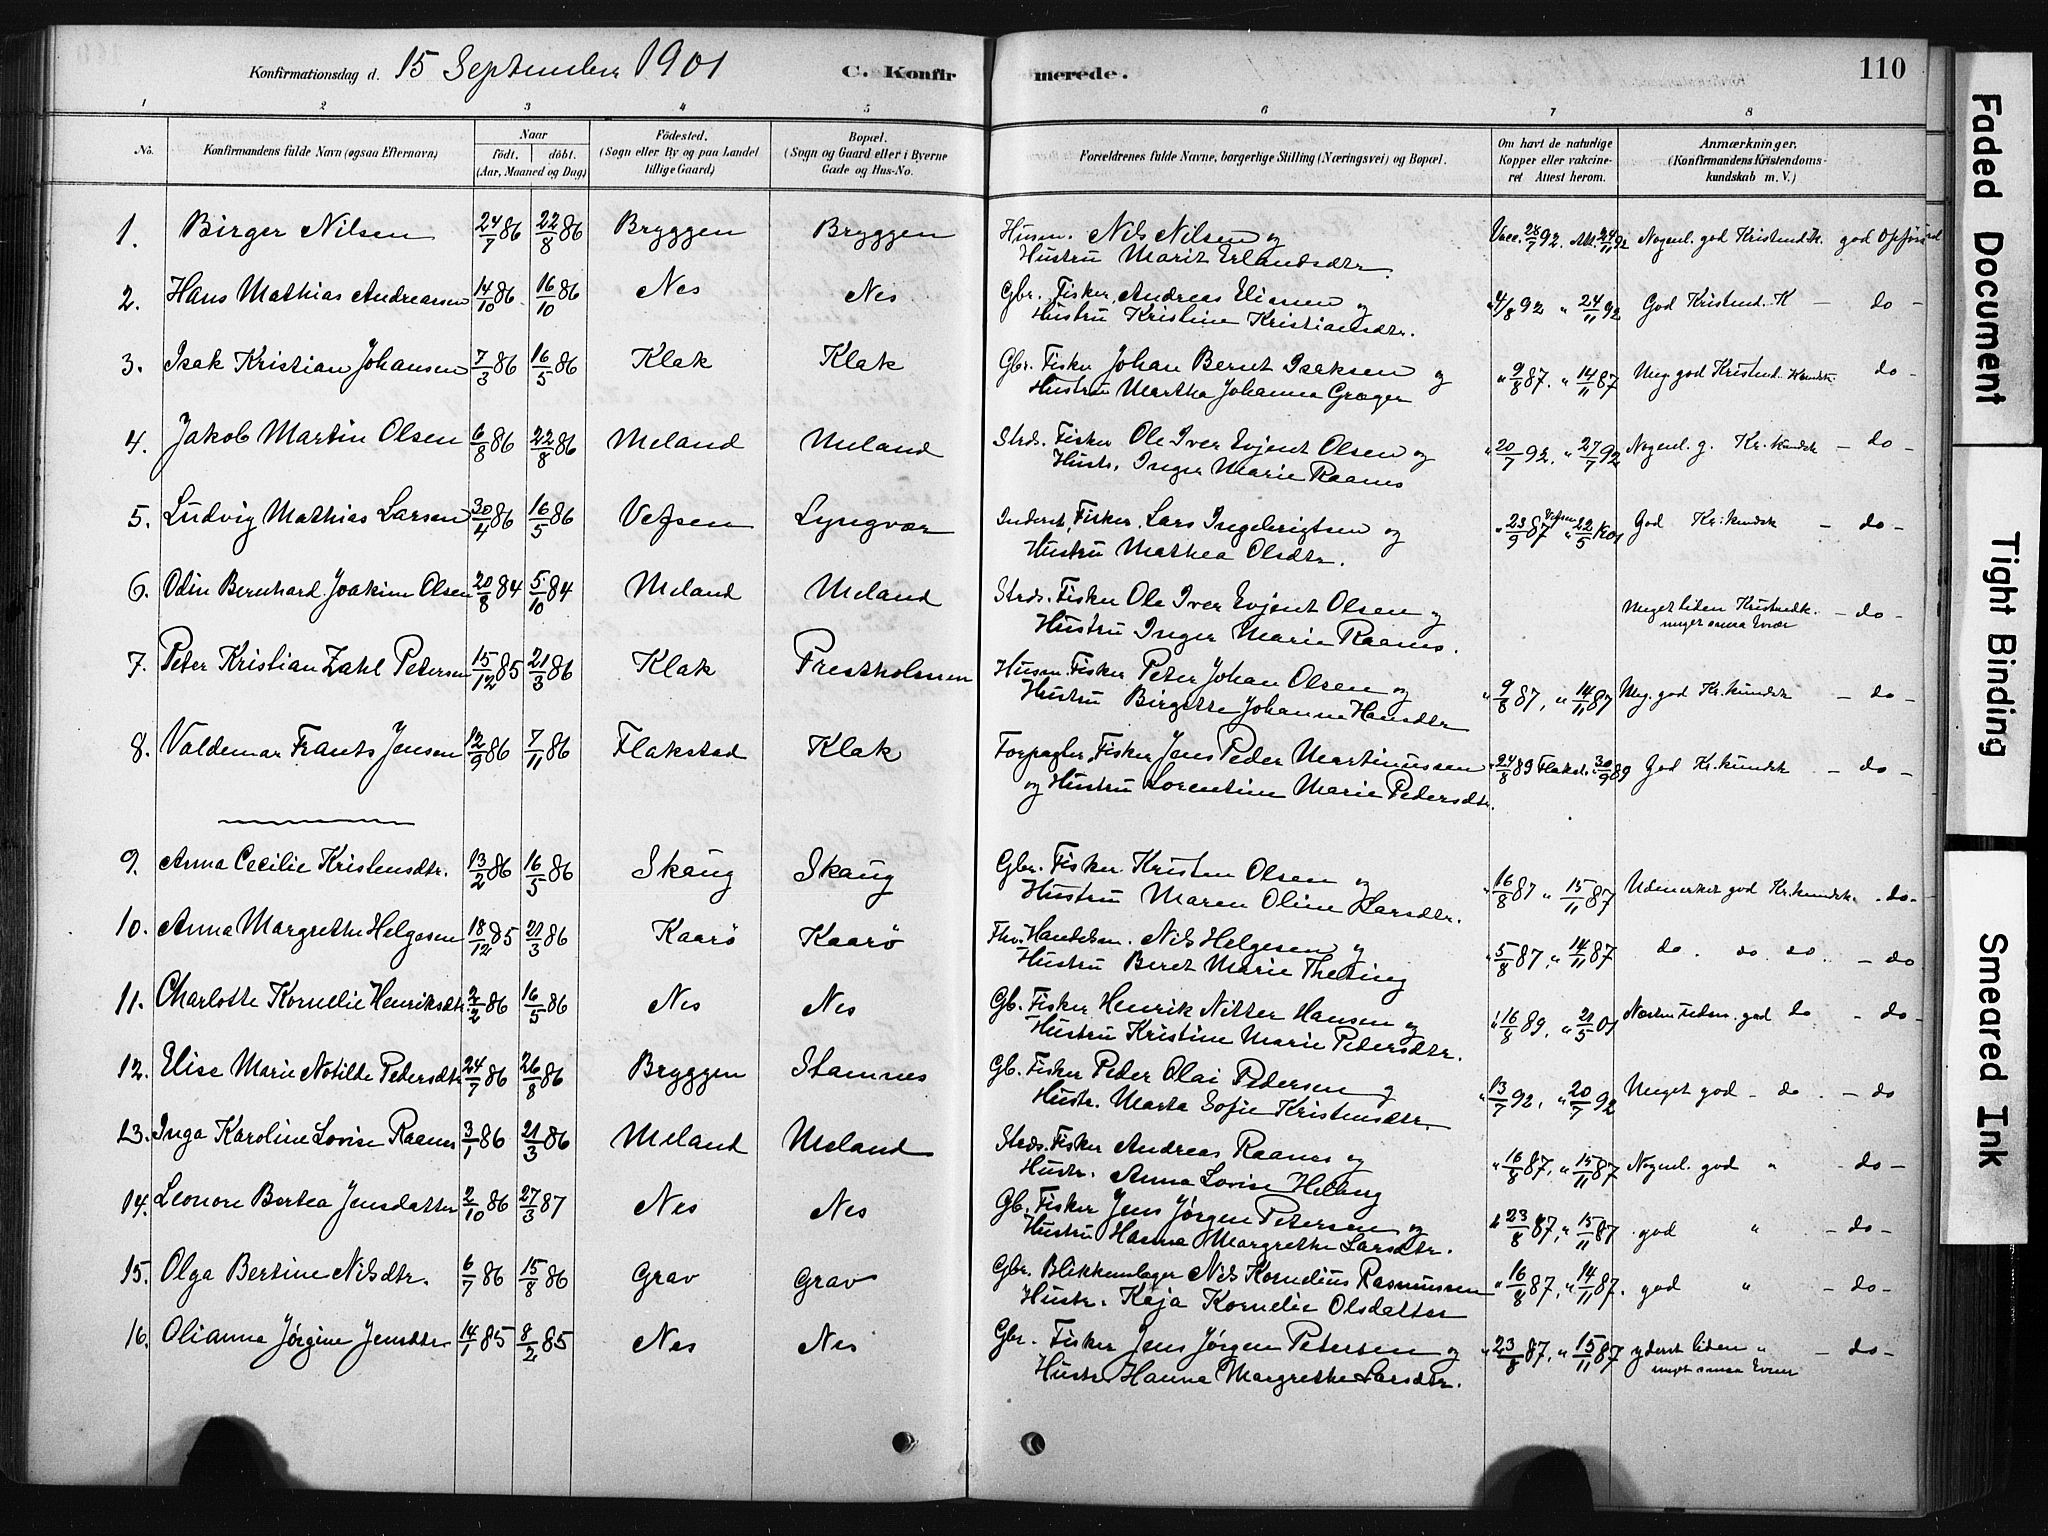 Konfirmationsdag d. 15 September 1901 C. Konfirmerede. 110
1 2 3 4 5 6 7 8
No. Konfirmandens fulde Navn (ogsaa Efternavn) Naar födt. döbt. (Aar, Maaned og Dag) Födested. (Sogn eller By og paa Landet tillige Gaard) Bopæl. (Sogn og Gaard eller i Byerne Gade og Hus-No. Forældrenes fulde Navne, borgerlige Stilling (Næringsvei) og Bopæl. Om havt de naturlige Kopper eller vakcineret Attest herom. Anmærkninger. (Konfirmandens Kristendomskundskab m. V.)
1. Birger Nilsen 24/7 86 22/8 86 Bryggen Bryggen Husm. Nils Nilsen og Vacc. 28/7 92. Att. 24/11 92 Nogenl. god Kristend.k. god Opførsel
Hustru Marit Erlandsdtr.
2. Hans Mathias Andreassen 14/10 86 16/10 86 Nes Nes Gbr. Fisker Andreas Eliasen og " 4/8 92 " 24/11 92 God Kristend. K — do —
Hustru Kristine Kristiansdtr.
3. Isak Kristian Johansen 7/3 86 16/5 86 Klak Klak Gbr. Fisker Johan Bernt Isaksen og " 9/8 87. " 14/11 87 Meg. god Kristend. Kundsk. do —
Hustru Martha Johanna Græger
4. Jakob Martin Olsen 6/8 86 22/8 86 Meland Meland Strds. Fisker Ole Iver Evjent Olsen og " 20/7 92. " 27/7 92 Nogenl. g. Kr. kundsk — do —
Hustr. Inger Marie Raanes
5. Ludvig Mathias Larsen 30/4 86 16/5 86 Vefsen Lyngvær Inderst, Fisker Lars Ingebrigtsen og " 23/9 87 Vefsen " 22/5 K01 God Kr: kundsk — do —
Hustru Mathea Olsdtr.
6. Odin Bernhard Joakim Olsen 20/8 84 5/10 84 Meland Meland Strds. Fisker Ole Iver Evjent Olsen og Meget liden Kristendk. — do —
Hustru Inger Marie Raanes. meget smaa Evner
7. Peter Kristian Zahl Petersen 15/12 85 21/3 86 Klak Prestholmen Husm. Fisker Peter Johan Olsen og " 9/8 87, " 14/11 87 Meg. god Kr. kundsk — do —
Hustru Birgitte Johanna Hansdtr
8. Valdemar Frants Jensen 12/9 86 7/11 86 Flakstad Klak Forpagter, Fisker Jens Peder Martinussen " 24/8 89 Flakst. 30/9 89 God Kr. kundsk — do —
og Hustru Lorentine Marie Pedersdtr.
9. Anna Cecilie Kristensdtr. 13/2 86 16/5 86 Skaug Skaug Gbr. Fisker Kristen Olsen og " 16/8 87 " 15/11 87 Udmerket god Kr. kundsk. . do.
Hustru Maren Oline Larsdtr.
10. Anna Margrethe Helgesen 18/12 85 21/3 86 Kaarö Kaarö Fhv. Handelsm. Nils Helgesen og " 5/8 87, " 14/11 87 do. do do. — do
Hustru Beret Marie Theting
11. Charlotte Kornelie Henriksdtr. 2/2 86 16/5 86 Nes Nes Gb. Fisker Henrik Nitter Hansen og " 16/8 89, " 21/5 01 Næsten udm. god do — do —
Hustru Kristine Marie Pedersdtr.
12. Elise Marie Notilde Pedersdtr 24/7 86 26/8 86 Bryggen Stamnes Gb. Fisker Peder Olai Pedersen og " 13/7 92, " 20/7 92 Meget god — do. — do
Hustr. Marta Sofie Kristensdtr.
13. Inga Karoline Lovise Raanes 3/1 86 21/3 86 Meland Meland Strds. Fisker Andreas Raanes og " 16/8 87, " 15/11 87 Nogenl. god " — do —
Hustr. Anna Lovise Helberg
14. Leonore Bertea Jensdatter 2/10 86 27/3 87 Nes Nes Gb. Fisker Jens Jørgen Petersen og " 23/8 87, " 15/11 87 god " — do —
Hustru Hanna Margrethe Larsdtr.
15. Olga Bertine Nilsdtr. 6/7 86 15/8 86 Grav Grav Gbr. Blikkenslager Nils Kornelius Rasmussen " 16/8 87, " 14/11 87. god " — do —
Hustr. Kaja Kornelie Olsdatter
16. Olianna Jørgine Jensdtr 14/1 85 8/2 85 Nes Nes Gbr. Fisker Jens Jørgen Petersen og " 23/8 87, " 15/11 87 yderst liden " — do —
Hustr. Hanna Margrethe Larsdtr. meget smaa Evner
Faded Document
Tight Binding
Smeared Ink